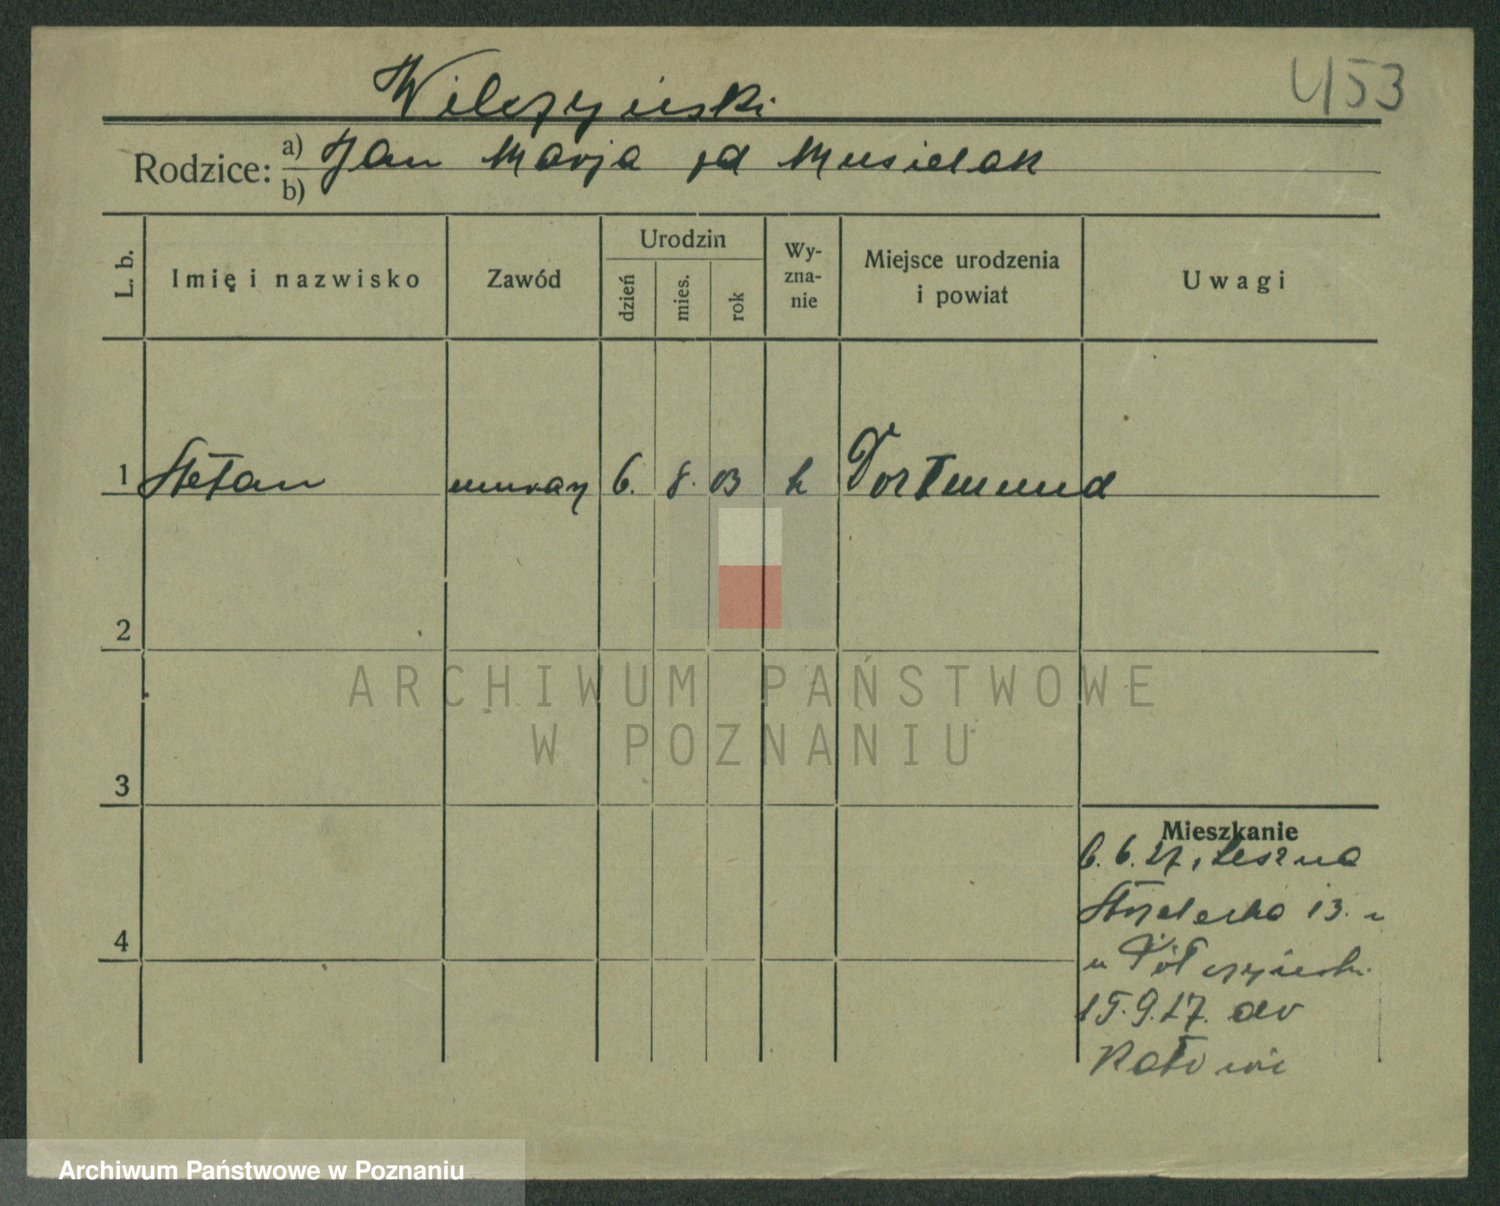 Wilczyński
453
Rodzice: a) Jan Marja zd Musielak
b)
L. b.
Imię i nazwisko
Zawód
Urodzin
dzień
mies.
rok
Wy-
zna-
nie
Miejsce urodzenia
i powiat
Uwagi
1 Stefan murarz 6. 8. 03 k Dortmund
2
3
4
Mieszkanie
6.6.27, Leszno
Strzelecka 13.
u
15.9.27. do
ARCHIWUM PAŃSTWOWE
W POZNANIU
Archiwum Państwowe w Poznaniu